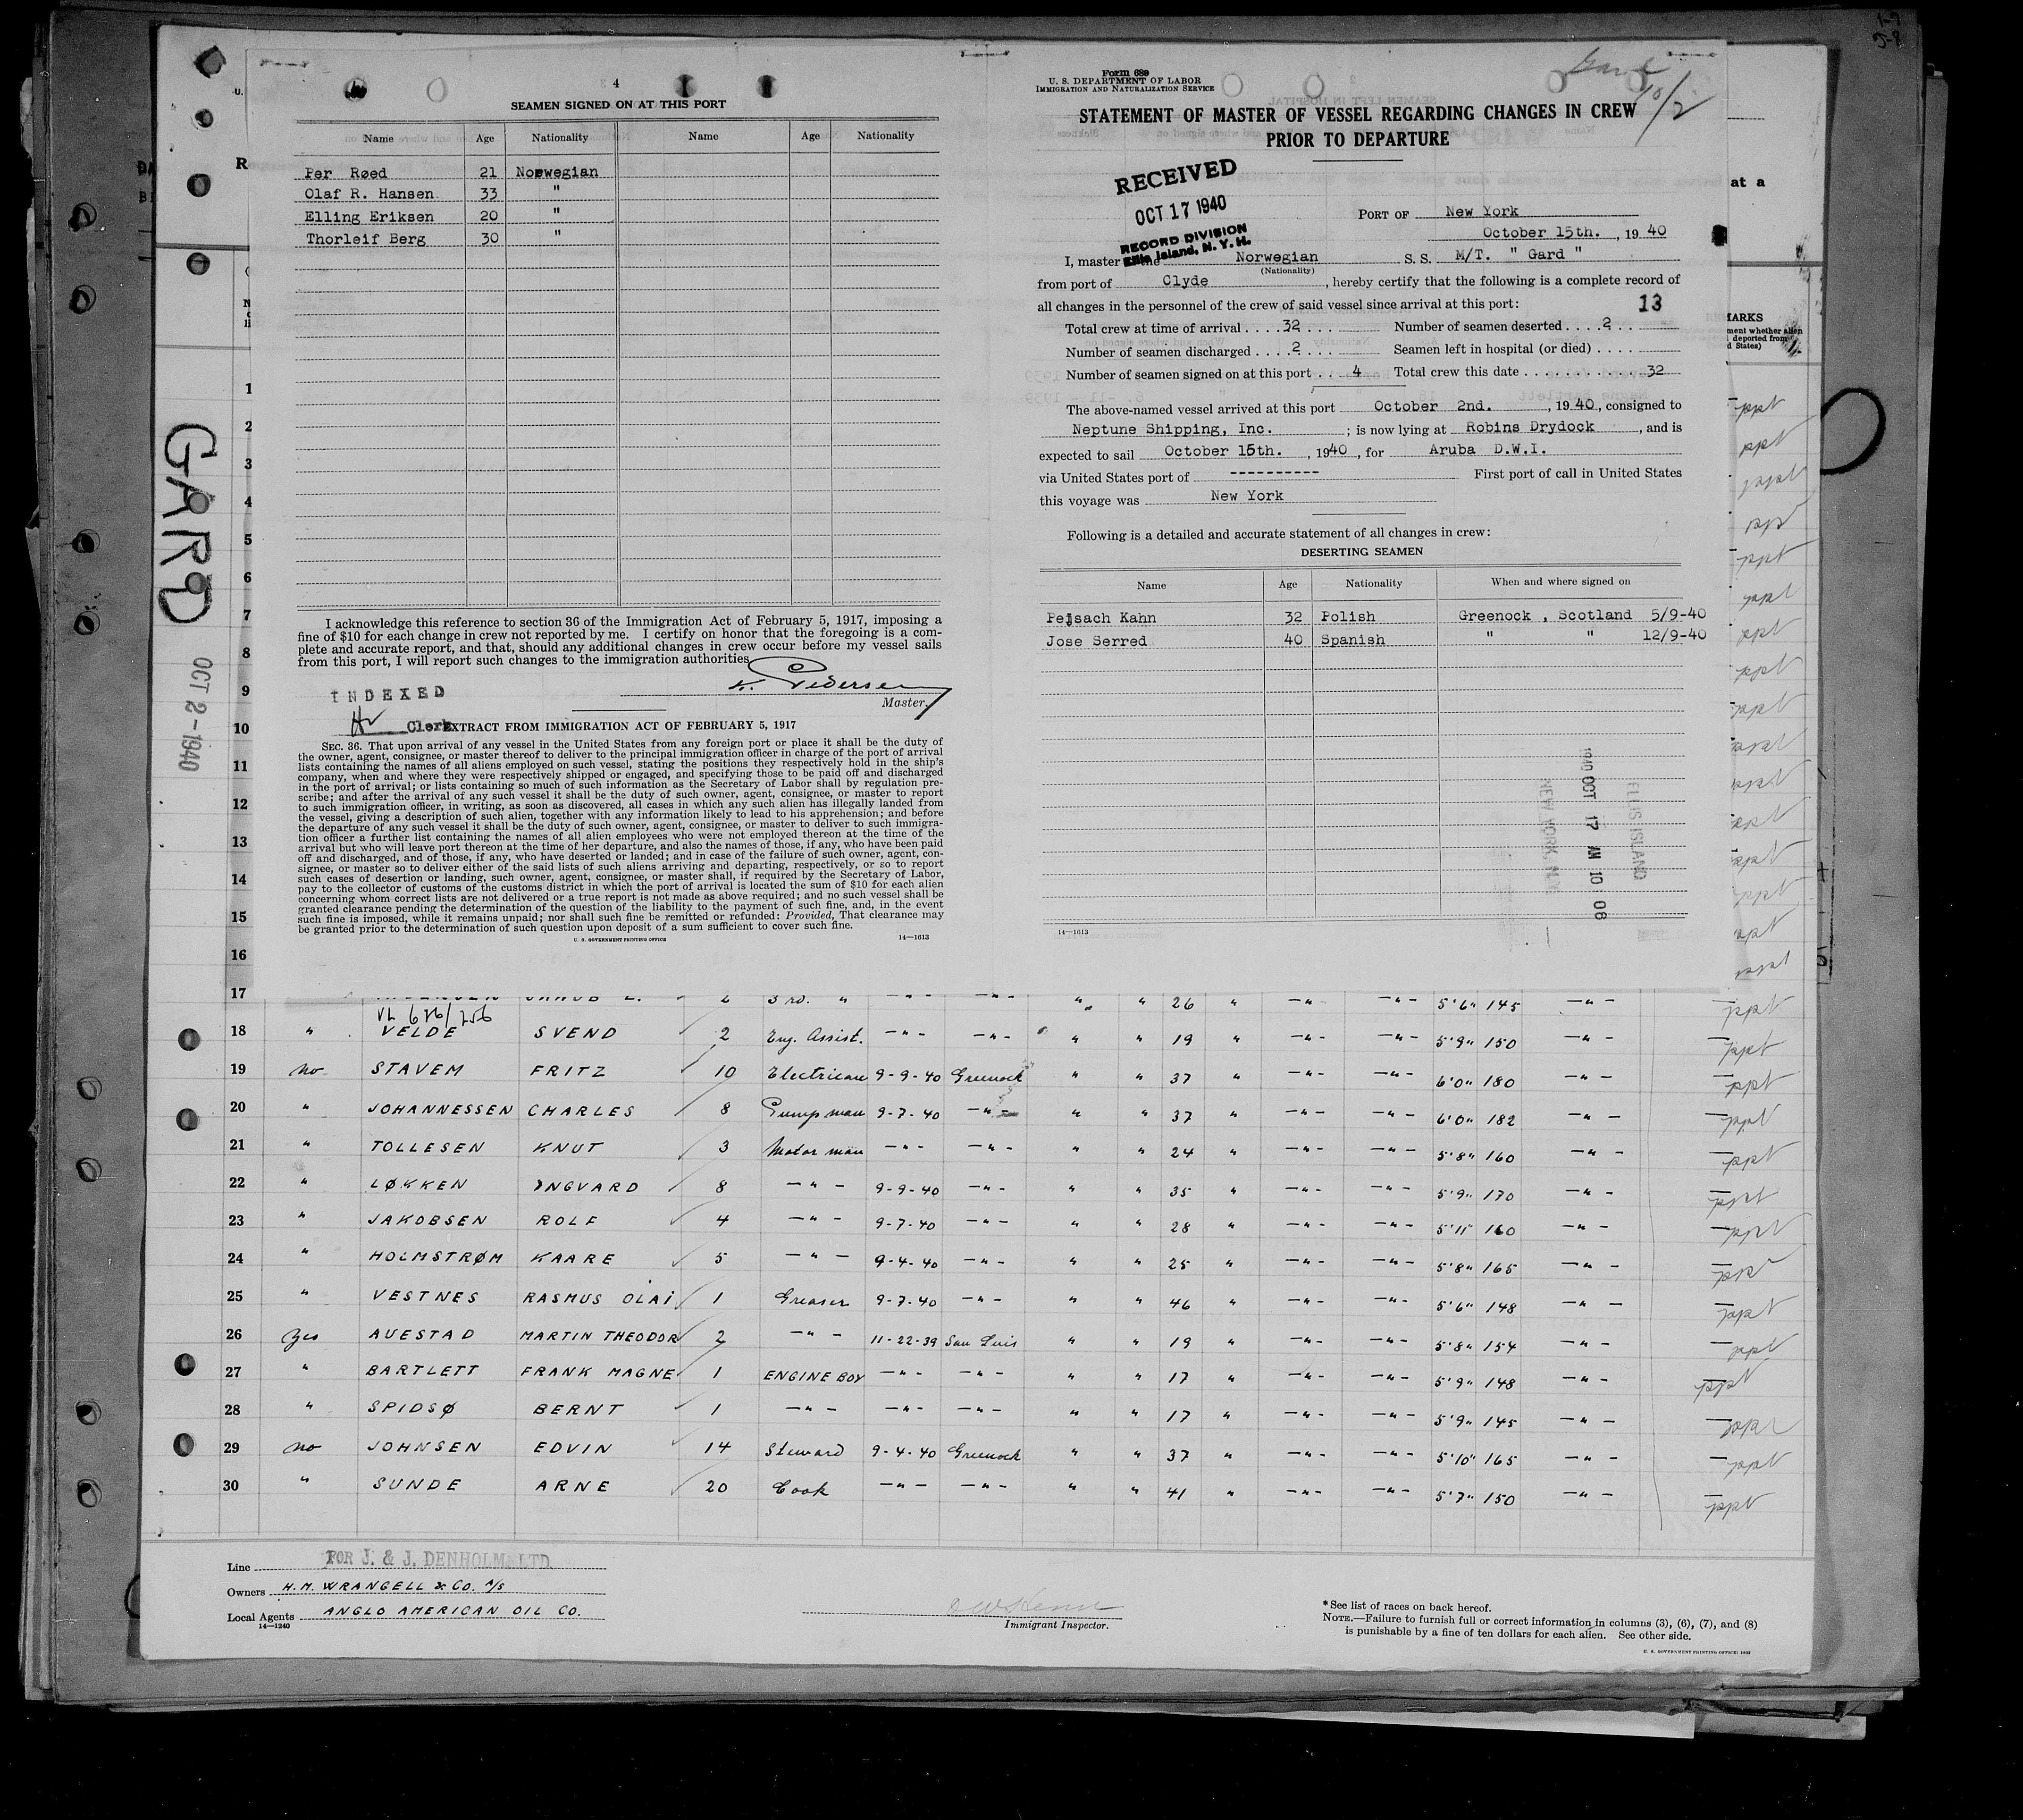 4
SEAMEN SIGNED ON AT THIS PORT
Name Age Nationality Name Age Nationality
Per Røed 21 Norwegian
Olaf R. Hansen 33 "
Elling Eriksen 20 "
Thorleif Berg 30 "
I acknowledge this reference to section 36 of the Immigration Act of February 5, 1917, imposing a
fine of $10 for each change in crew not reported by me. I certify on honor that the foregoing is a com-
plete and accurate report, and that, should any additional changes in crew occur before my vessel sails
from this port, I will report such changes to the immigration authorities.
K. Pedersen
Master.
INDEXED
Clerk
EXTRACT FROM IMMIGRATION ACT OF FEBRUARY 5, 1917
SEC. 36. That upon arrival of any vessel in the United States from any foreign port or place it shall be the duty of
the owner, agent, consignee, or master thereof to deliver to the principal immigration officer in charge of the port of arrival
lists containing the names of all aliens employed on such vessel, stating the positions they respectively hold in the ship's
company, when and where they were respectively shipped or engaged, and specifying those to be paid off and discharged
in the port of arrival; or lists containing so much of such information as the Secretary of Labor shall by regulation pre-
scribe; and after the arrival of any such vessel it shall be the duty of such owner, agent, consignee, or master to report
to such immigration officer, in writing, as soon as discovered, all cases in which any such alien has illegally landed from
the vessel, giving a description of such alien, together with any information likely to lead to his apprehension; and before
the departure of any such vessel it shall be the duty of such owner, agent, consignee, or master to deliver to such immigra-
tion officer a further list containing the names of all alien employees who were not employed thereon at the time of the
arrival but who will leave port thereon at the time of her departure, and also the names of those, if any, who have been paid
off and discharged, and of those, if any, who have deserted or landed; and in case of the failure of such owner, agent, con-
signee, or master so to deliver either of the said lists of such aliens arriving and departing, respectively, or so to report
such cases of desertion or landing, such owner, agent, consignee, or master shall, if required by the Secretary of Labor,
pay to the collector of customs of the customs district in which the port of arrival is located the sum of $10 for each alien
concerning whom correct lists are not delivered or a true report is not made as above required; and no such vessel shall be
granted clearance pending the determination of the question of the liability to the payment of such fine, and, in the event
such fine is imposed, while it remains unpaid; nor shall such fine be remitted or refunded: Provided, That clearance may
be granted prior to the determination of such question upon deposit of a sum sufficient to cover such fine.
U. S. GOVERNMENT PRINTING OFFICE 14—1613
Form 689
U. S. DEPARTMENT OF LABOR
IMMIGRATION AND NATURALIZATION SERVICE
Gard
10/2
STATEMENT OF MASTER OF VESSEL REGARDING CHANGES IN CREW
PRIOR TO DEPARTURE
RECEIVED
OCT 17 1940
RECORD DIVISION
Ellis Island, N. Y. H.
PORT OF New York
October 15th., 1940
I, master of the Norwegian S. S. M/T. " Gard "
(Nationality)
from port of Clyde, hereby certify that the following is a complete record of
all changes in the personnel of the crew of said vessel since arrival at this port:
13
Total crew at time of arrival . . . . 32 . . . Number of seamen deserted . . . . 2 . .
Number of seamen discharged . . . . 2 . . . . Seamen left in hospital (or died) . . . .
Number of seamen signed on at this port . . . 4 Total crew this date . . . . . . . . . . . . 32
The above-named vessel arrived at this port October 2nd., 1940, consigned to
Neptune Shipping, Inc. ; is now lying at Robins Drydock, and is
expected to sail October 15th., 1940, for Aruba D.W.I.
via United States port of ----------- First port of call in United States
this voyage was New York
Following is a detailed and accurate statement of all changes in crew:
DESERTING SEAMEN
Name Age Nationality When and where signed on
Pejsach Kahn 32 Polish Greenock , Scotland 5/9-40
Jose Serred 40 Spanish " " 12/9-40
ELLIS ISLAND
1940 OCT 17 AM 10 06
NEW YORK, N.Y.
14—1613
GARD
OCT 2-1940
at a
1
2
3
4
5
6
7
8
9
10
11
12
13
14
15
16
17 3rd. " " " 26 " 5'6" 145 ppt
18 " VELDE SVEND 2 Eng. Assist. —"— —"— " " 19 " —"— —"— 5'9" 150 —"— ppt
19 no STAVEM FRITZ 10 Electrician 9-9-40 Greenock " " 37 " —"— —"— 6'0" 180 —"— ppt
20 " JOHANNESSEN CHARLES 8 Pumpman 9-7-40 —"— " " 37 " —"— —"— 6'0" 182 —"— ppt
21 " TOLLESEN KNUT 3 Motor man —"— —"— " " 24 " —"— —"— 5'8" 160 —"— ppt
22 " LØKKEN INGVARD 8 —"— 9-9-40 —"— " " 35 " —"— —"— 5'9" 170 —"— ppt
23 " JAKOBSEN ROLF 4 —"— 9-7-40 —"— " " 28 " —"— —"— 5'11" 160 —"— ppt
24 " HOLMSTRØM KAARE 5 —"— 9-4-40 —"— " " 25 " —"— —"— 5'8" 165 —"— ppt
25 " VESTNES RASMUS OLAI 1 Greaser 9-7-40 —"— " " 46 " —"— —"— 5'6" 148 —"— ppt
26 Yes AUESTAD MARTIN THEODOR 2 —"— 11-22-39 San Luis " " 19 " —"— —"— 5'8" 154 —"— ppt
27 " BARTLETT FRANK MAGNE 1 ENGINE BOY —"— —"— " " 17 " —"— —"— 5'9" 148 —"— ppt
28 " SPIDSØ BERNT 1 —"— —"— —"— " " 17 " —"— —"— 5'9" 145 —"— ppt
29 no JOHNSEN EDVIN 14 Steward 9-4-40 Greenock " " 37 " —"— —"— 5'10" 165 —"— ppt
30 " SUNDE ARNE 20 Cook —"— —"— " " 41 " —"— —"— 5'7" 150 —"— ppt
Line FOR J. & J. DENHOLM LTD.
Owners H. M. WRANGELL & CO. A/S
Local Agents ANGLO AMERICAN OIL CO.
14—1240
Immigrant Inspector.
*See list of races on back hereof.
NOTE.—Failure to furnish full or correct information in columns (3), (6), (7), and (8)
is punishable by a fine of ten dollars for each alien. See other side.